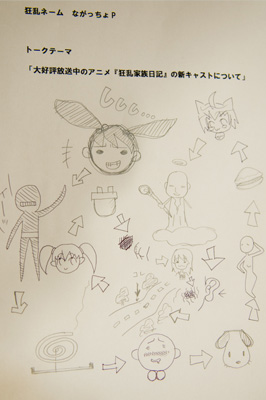 狂乱ネーム　ながっちょP
トークテーマ
「大好評放送中のアニメ『狂乱家族日記』の新キャストについて」